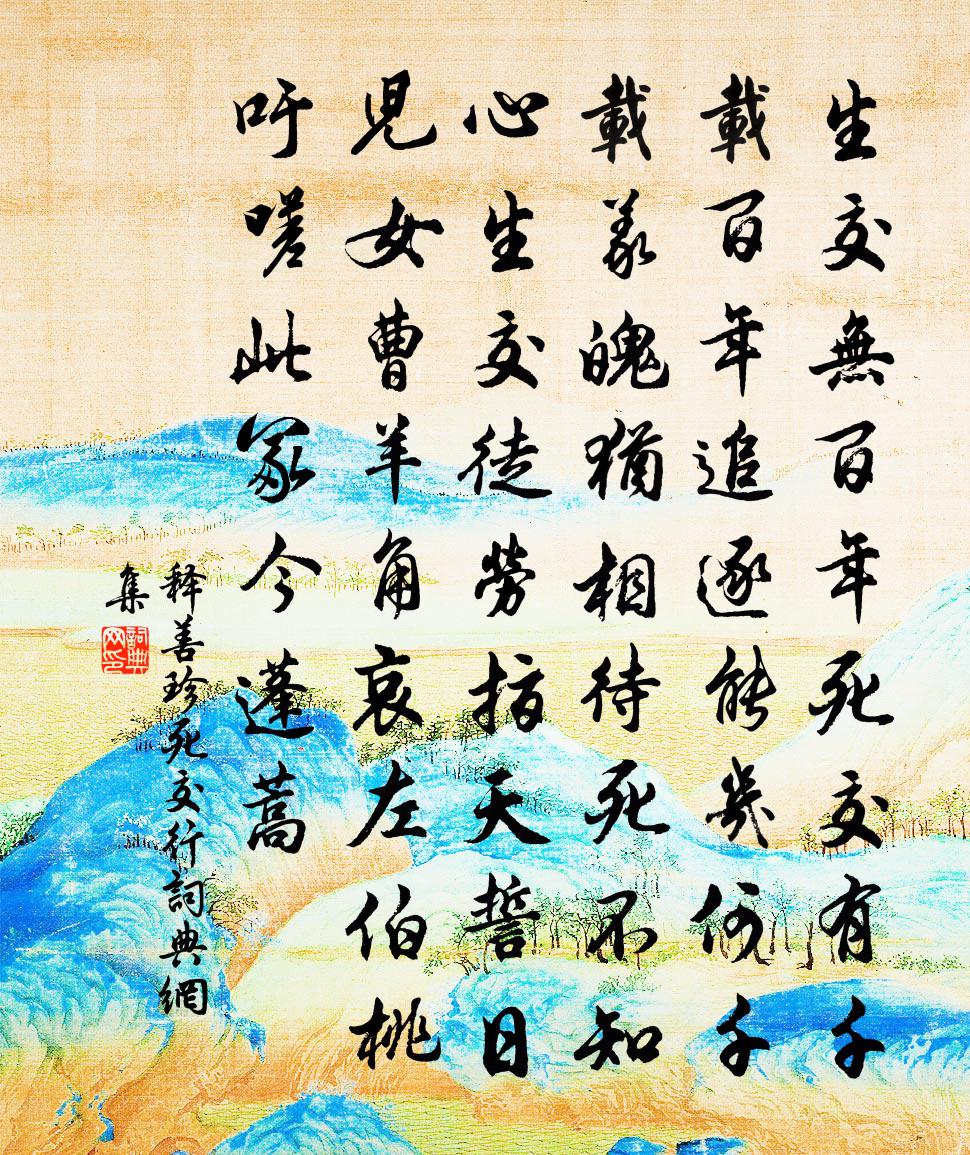 生交無百年死交有千
載百年追逐能幾何千
載義魄猶相待死不知
心生交徒勞指天誓日
兒女曹羊角哀左伯桃
吁嗟此冢今蓬蒿
释善珍死交行詞典網
集
詞典網印